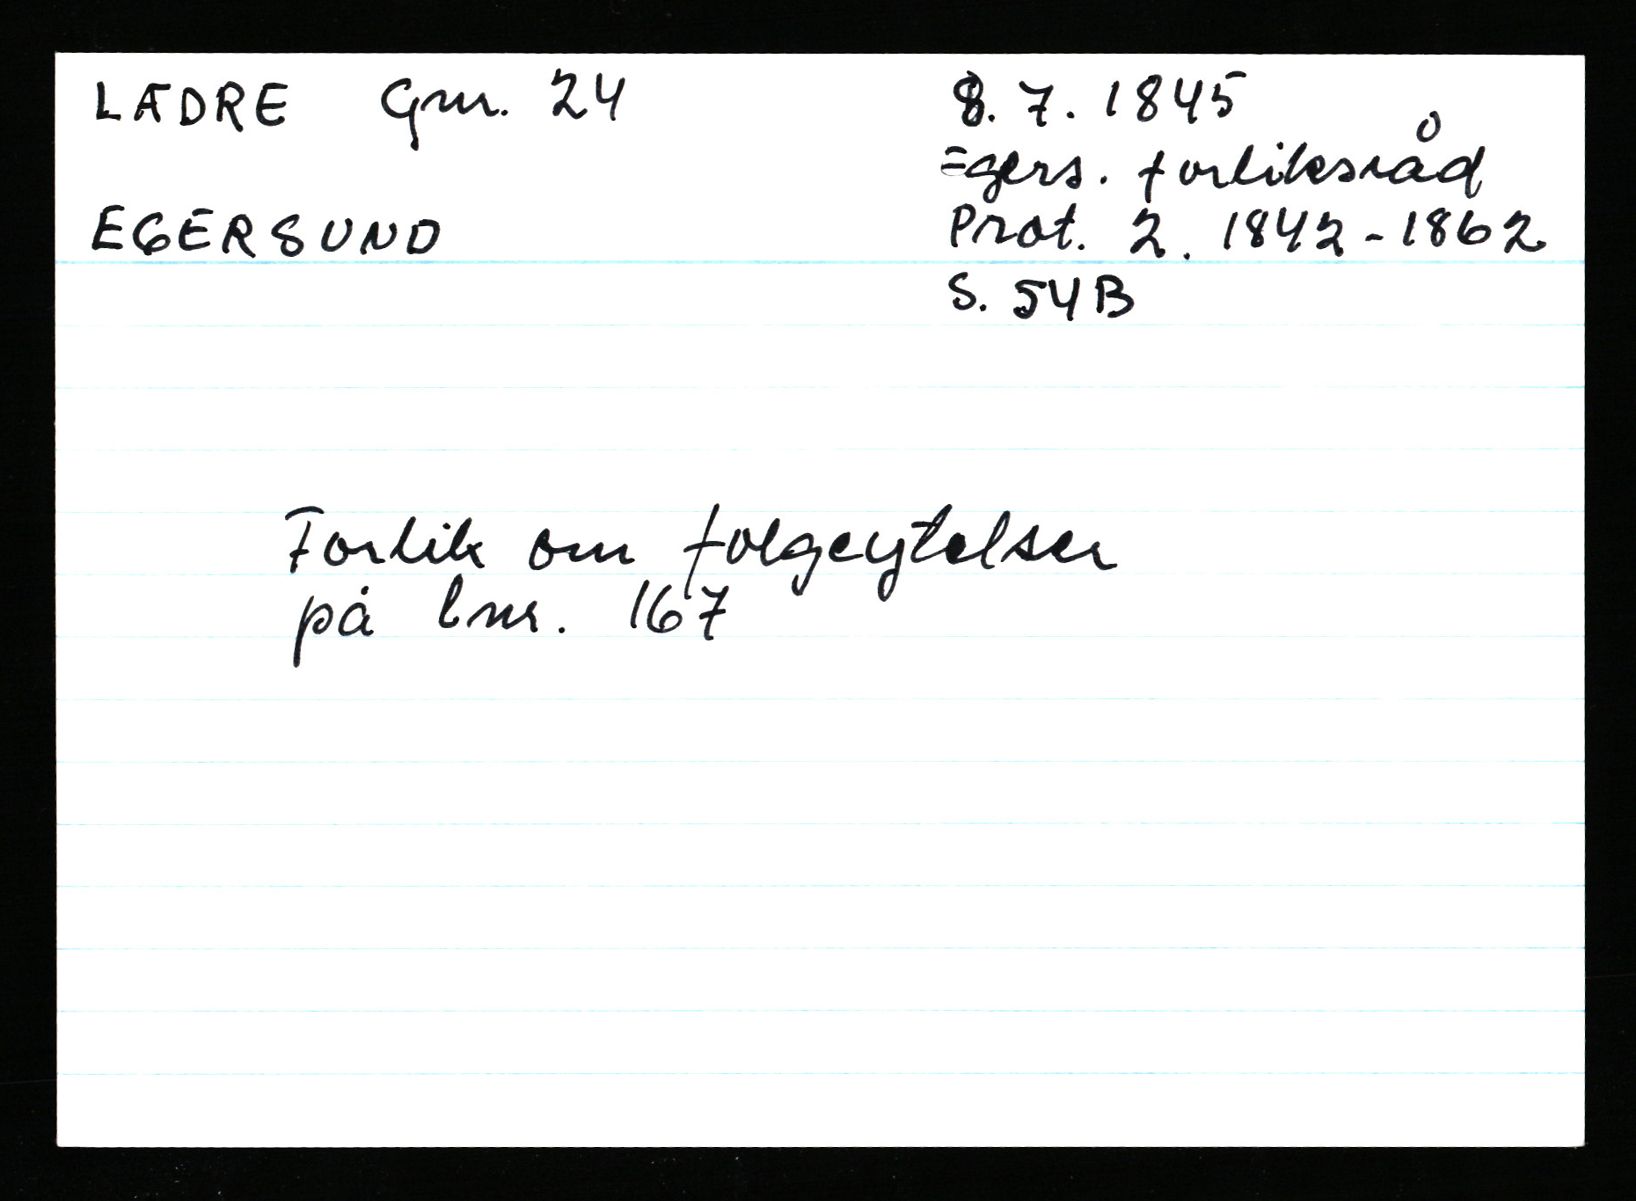 LÆDRE Gnr. 24
EGERSUND
8. 7. 1845
Egers. forliksråd
Prot. 2. 1842-1862
S. 54B
Forlik om folgeytelser
på lnr. 167